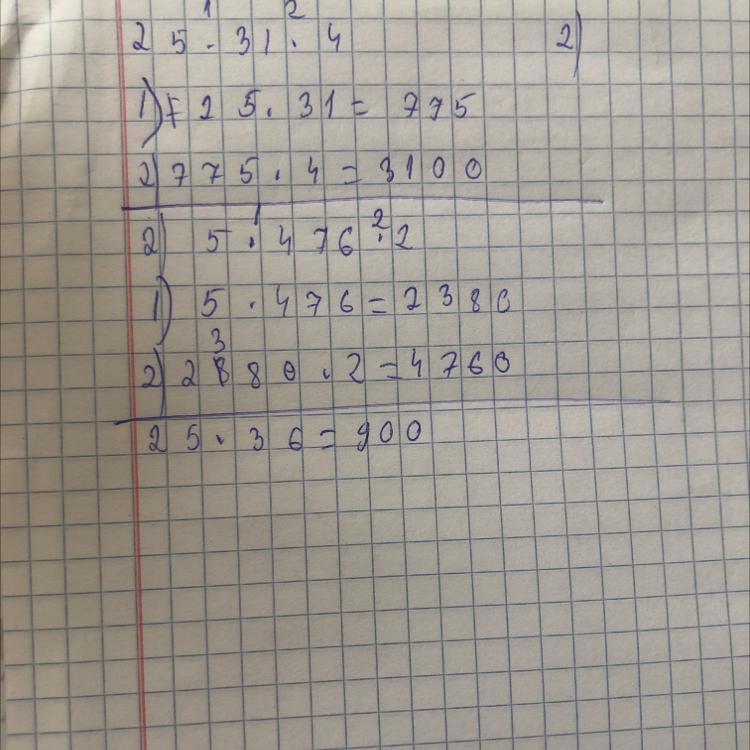 1 2
25 · 31 · 4 2)
1) 25 · 31 = 775
2) 775 · 4 = 3100
1 2
2) 5 · 476 · 2
1) 5 · 476 = 2380
3
2) 2880 · 2 = 4760
25 · 36 = 900